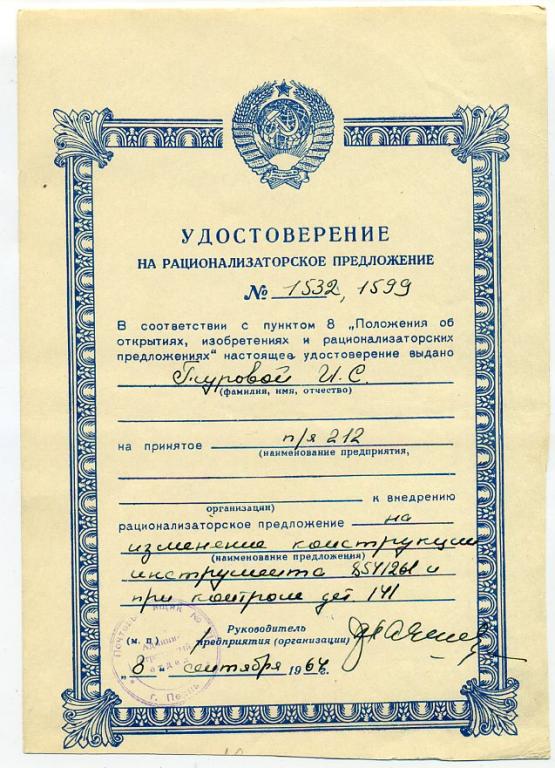 УДОСТОВЕРЕНИЕ
НА РАЦИОНАЛИЗАТОРСКОЕ ПРЕДЛОЖЕНИЕ
№ 1532, 1599
В соответствии с пунктом 8 „Положения об
открытиях, изобретениях и рационализаторских
предложениях" настоящее удостоверение выдано
Гуровой И.С.
(фамилия, имя, отчество)
на принятое п/я 212
(наименование предприятия,
к внедрению
организации)
рационализаторское предложение на
изменение конструкции
(наименование предложения)
инструмента 854/261 и
при контроле дет. 141
Руководитель
(м. п.) предприятия (организации)
„8" сентября 1964г.
Почтовый ящик №
г. Пермь